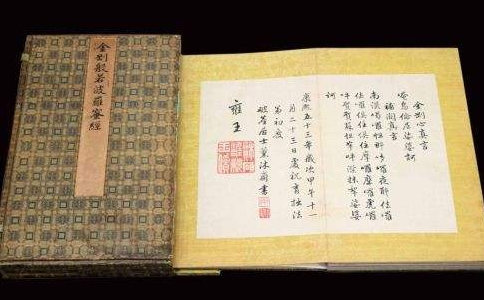 金剛般若波羅蜜經
金剛心真言
唵烏倫尼娑婆訶
補闕真言
南謨喝囉怛那哆囉夜耶佉囉
佉囉俱住俱住摩囉摩囉虎囉
吽賀賀蘇怛拏吽潑抹拏娑婆
訶
康熙五十三年歲次甲午十一
月二十三日慶祝法
第初度
居士薰沐書
雍王